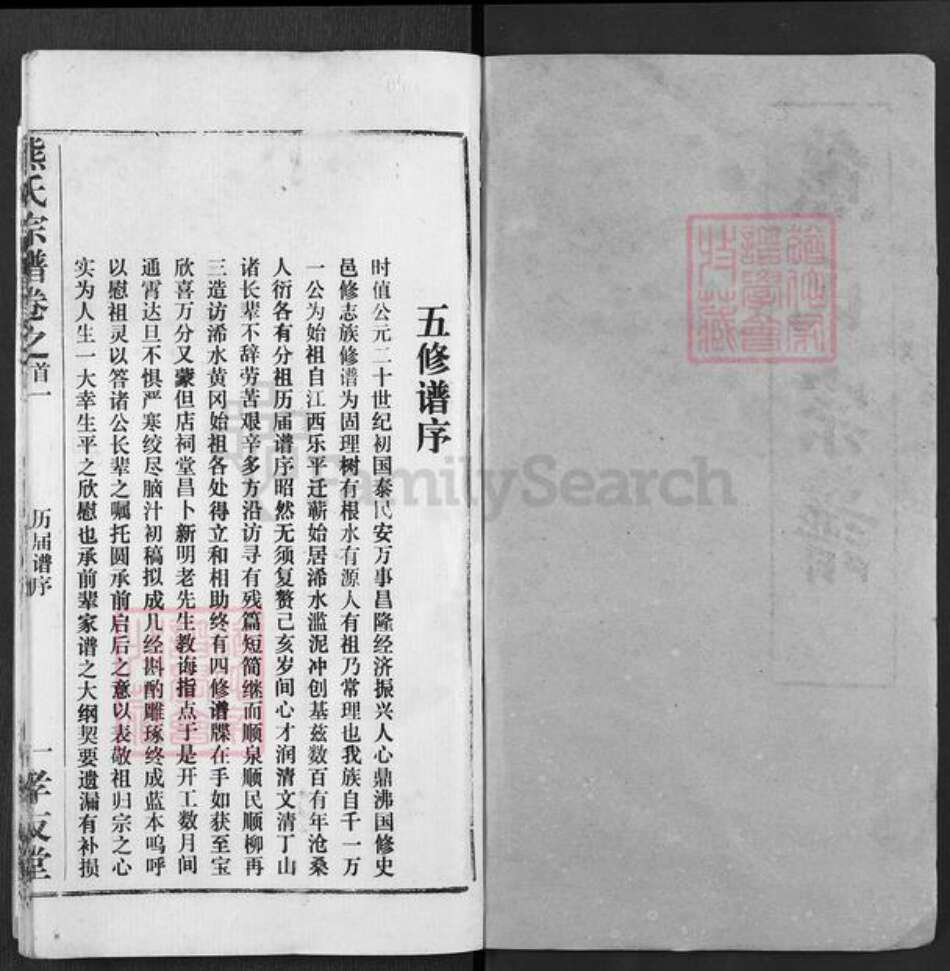 五修谱序
时值公元二十世纪初国泰民安万事昌隆经济振兴人心鼎沸国修史
邑修志族修谱为固理树有根水有源人有祖乃常理也我族自千一万
一公为始祖自江西乐平迁蕲始居浠水滥泥冲创基兹数百有年沧桑
人衍各有分祖历届谱序昭然无须复赘己亥岁间心才润清文清丁山
诸长辈不辞劳苦艰辛多方沿访寻有残篇短简继而顺泉顺民顺柳再
三造访浠水黄冈始祖各处得立和相助终有四修谱牒在手如获至宝
欣喜万分又蒙但店祠堂昌卜新明老先生教诲指点于是开工数月间
通宵达旦不惧严寒绞尽脑汁初稿拟成几经斟酌雕琢终成蓝本呜呼
以慰祖灵以答诸公长辈之嘱托圆承前启后之意以表敬祖归宗之心
实为人生一大幸生平之欣慰也承前辈家谱之大纲契要遗漏有补损
熊氏宗谱卷之首一
历届谱序
一孝友堂
FamilySearch